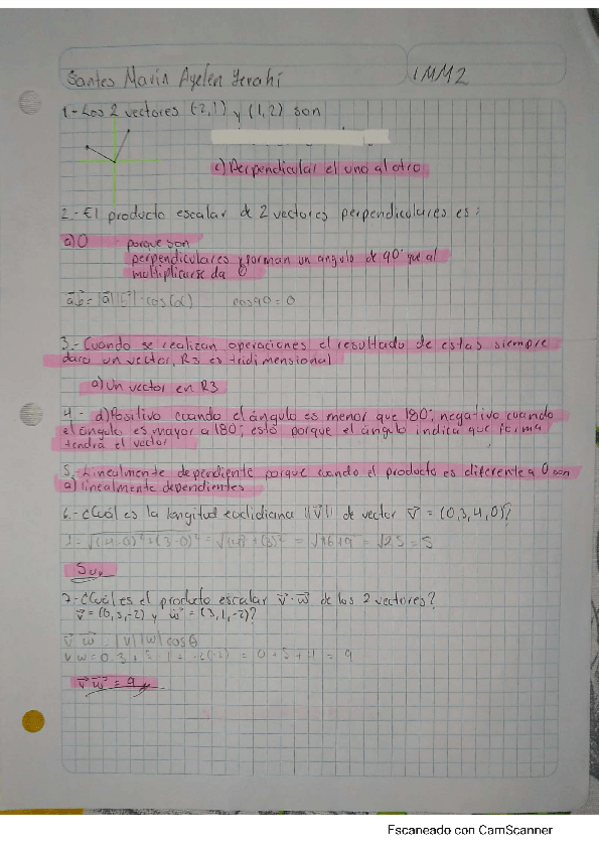 Santes Marin Ayelen Yerahi
1MM2
1.- Los 2 vectores (-2,1) y (1,2) son
c) Perpendicular el uno al otro
2.- El producto escalar de 2 vectores perpendiculares es:
a) 0 porque son
perpendiculares y forman un angulo de 90° que al
multiplicarse da 0
cos90 = 0
3.- Cuando se realizan operaciones el resultado de estas siempre
dara un vector, R3 es tridimensional
a) Un vector en R3
4.- d) Positivo cuando el ángulo es menor que 180°, negativo cuando
el ángulo es mayor a 180°, esto porque el ángulo indica que
tendrá el vector
5.- Linealmente dependiente porque cuando el producto es diferente a 0 son
a) linealmente dependientes
6.- ¿Cuál es la longitud euclidiana ||v⃗|| de vector v⃗ = (0,3,4,0)?
= √(4-0)²+(3-0)² = √(4)²+(3)² = √16+9 = √25 = 5
5u
7.- ¿Cuál es el producto escalar v⃗·w⃗ de los 2 vectores?
v⃗ = (0,5,-2) y w⃗ = (3,1,-2)?
v⃗ w⃗ |v||w| cos θ
v w = 0.3 + = 0+5+4 = 9
v⃗ w⃗ = 9
Escaneado con CamScanner